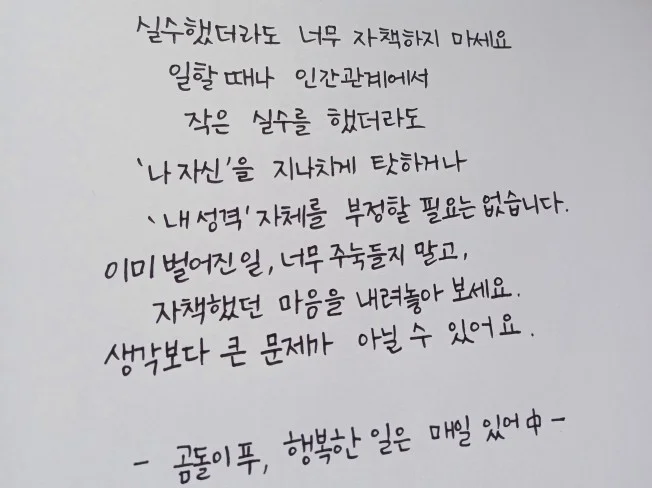 실수했더라도 너무 자책하지 마세요
일할 때나 인간관계에서
작은 실수를 했더라도
'나 자신'을 지나치게 탓하거나
'내 성격' 자체를 부정할 필요는 없습니다.
이미 벌어진 일, 너무 주눅들지 말고,
자책했던 마음을 내려놓아 보세요.
생각보다 큰 문제가 아닐 수 있어요.
- 곰돌이 푸, 행복한 일은 매일 있어 中 -